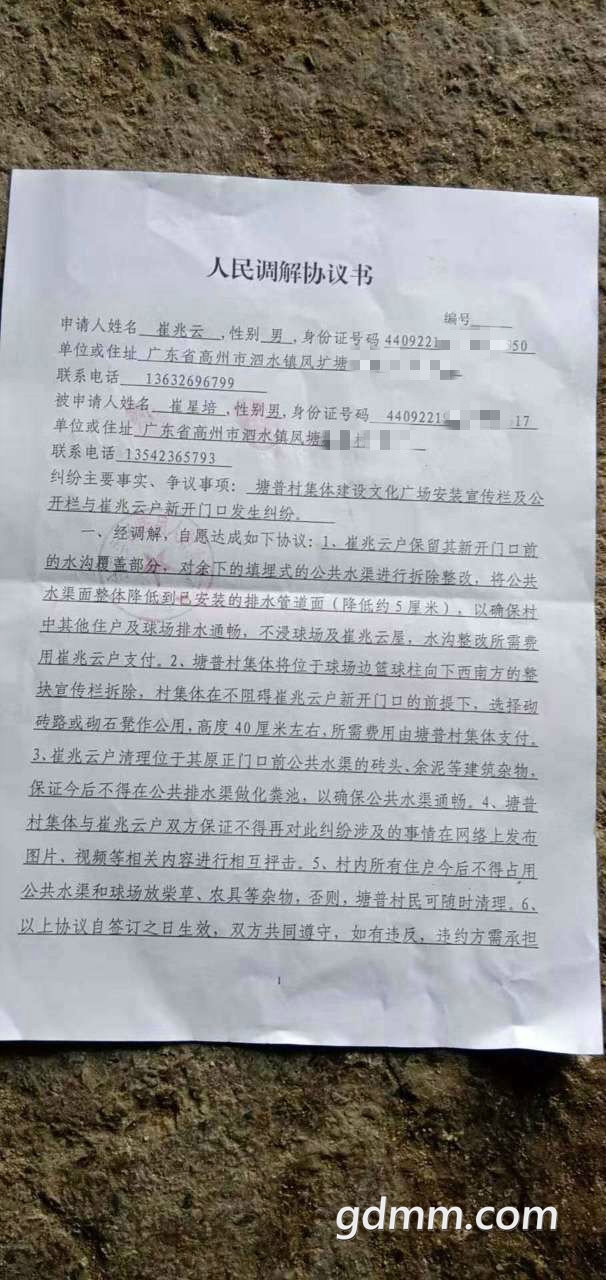 人民调解协议书
编号
申请人姓名 崔兆云 ,性别 男 ,身份证号码 4409221 50
单位或住址 广东省高州市泗水镇凤圹塘
联系电话 13632696799
被申请人姓名 崔星培 ,性别男,身份证号码 4409221 17
单位或住址 广东省高州市泗水镇凤塘
联系电话 13542365793
纠纷主要事实、争议事项: 塘普村集体建设文化广场安装宣传栏及公
开栏与崔兆云户新开门口发生纠纷。
一、经调解,自愿达成如下协议:1、崔兆云户保留其新开门口前
的水沟覆盖部分,对余下的填埋式的公共水渠进行拆除整改,将公共
水渠面整体降低到已安装的排水管道面(降低约5厘米),以确保村
中其他住户及球场排水通畅,不浸球场及崔兆云屋,水沟整改所需费
用崔兆云户支付。2、塘普村集体将位于球场边篮球柱向下西南方的整
块宣传栏拆除,村集体在不阻碍崔兆云户新开门口的前提下,选择砌
砖路或砌石凳作公用,高度40厘米左右,所需费用由塘普村集体支付。
3、崔兆云户清理位于其原正门口前公共水渠的砖头、余泥等建筑杂物,
保证今后不得在公共排水渠做化粪池,以确保公共水渠通畅。4、塘普
村集体与崔兆云户双方保证不得再对此纠纷涉及的事情在网络上发布
图片、视频等相关内容进行相互抨击。5、村内所有住户今后不得占用
公共水渠和球场放柴草、农具等杂物,否则,塘普村民可随时清理。6、
以上协议自签订之日生效,双方共同遵守,如有违反,违约方需承担
1
gdmm.com